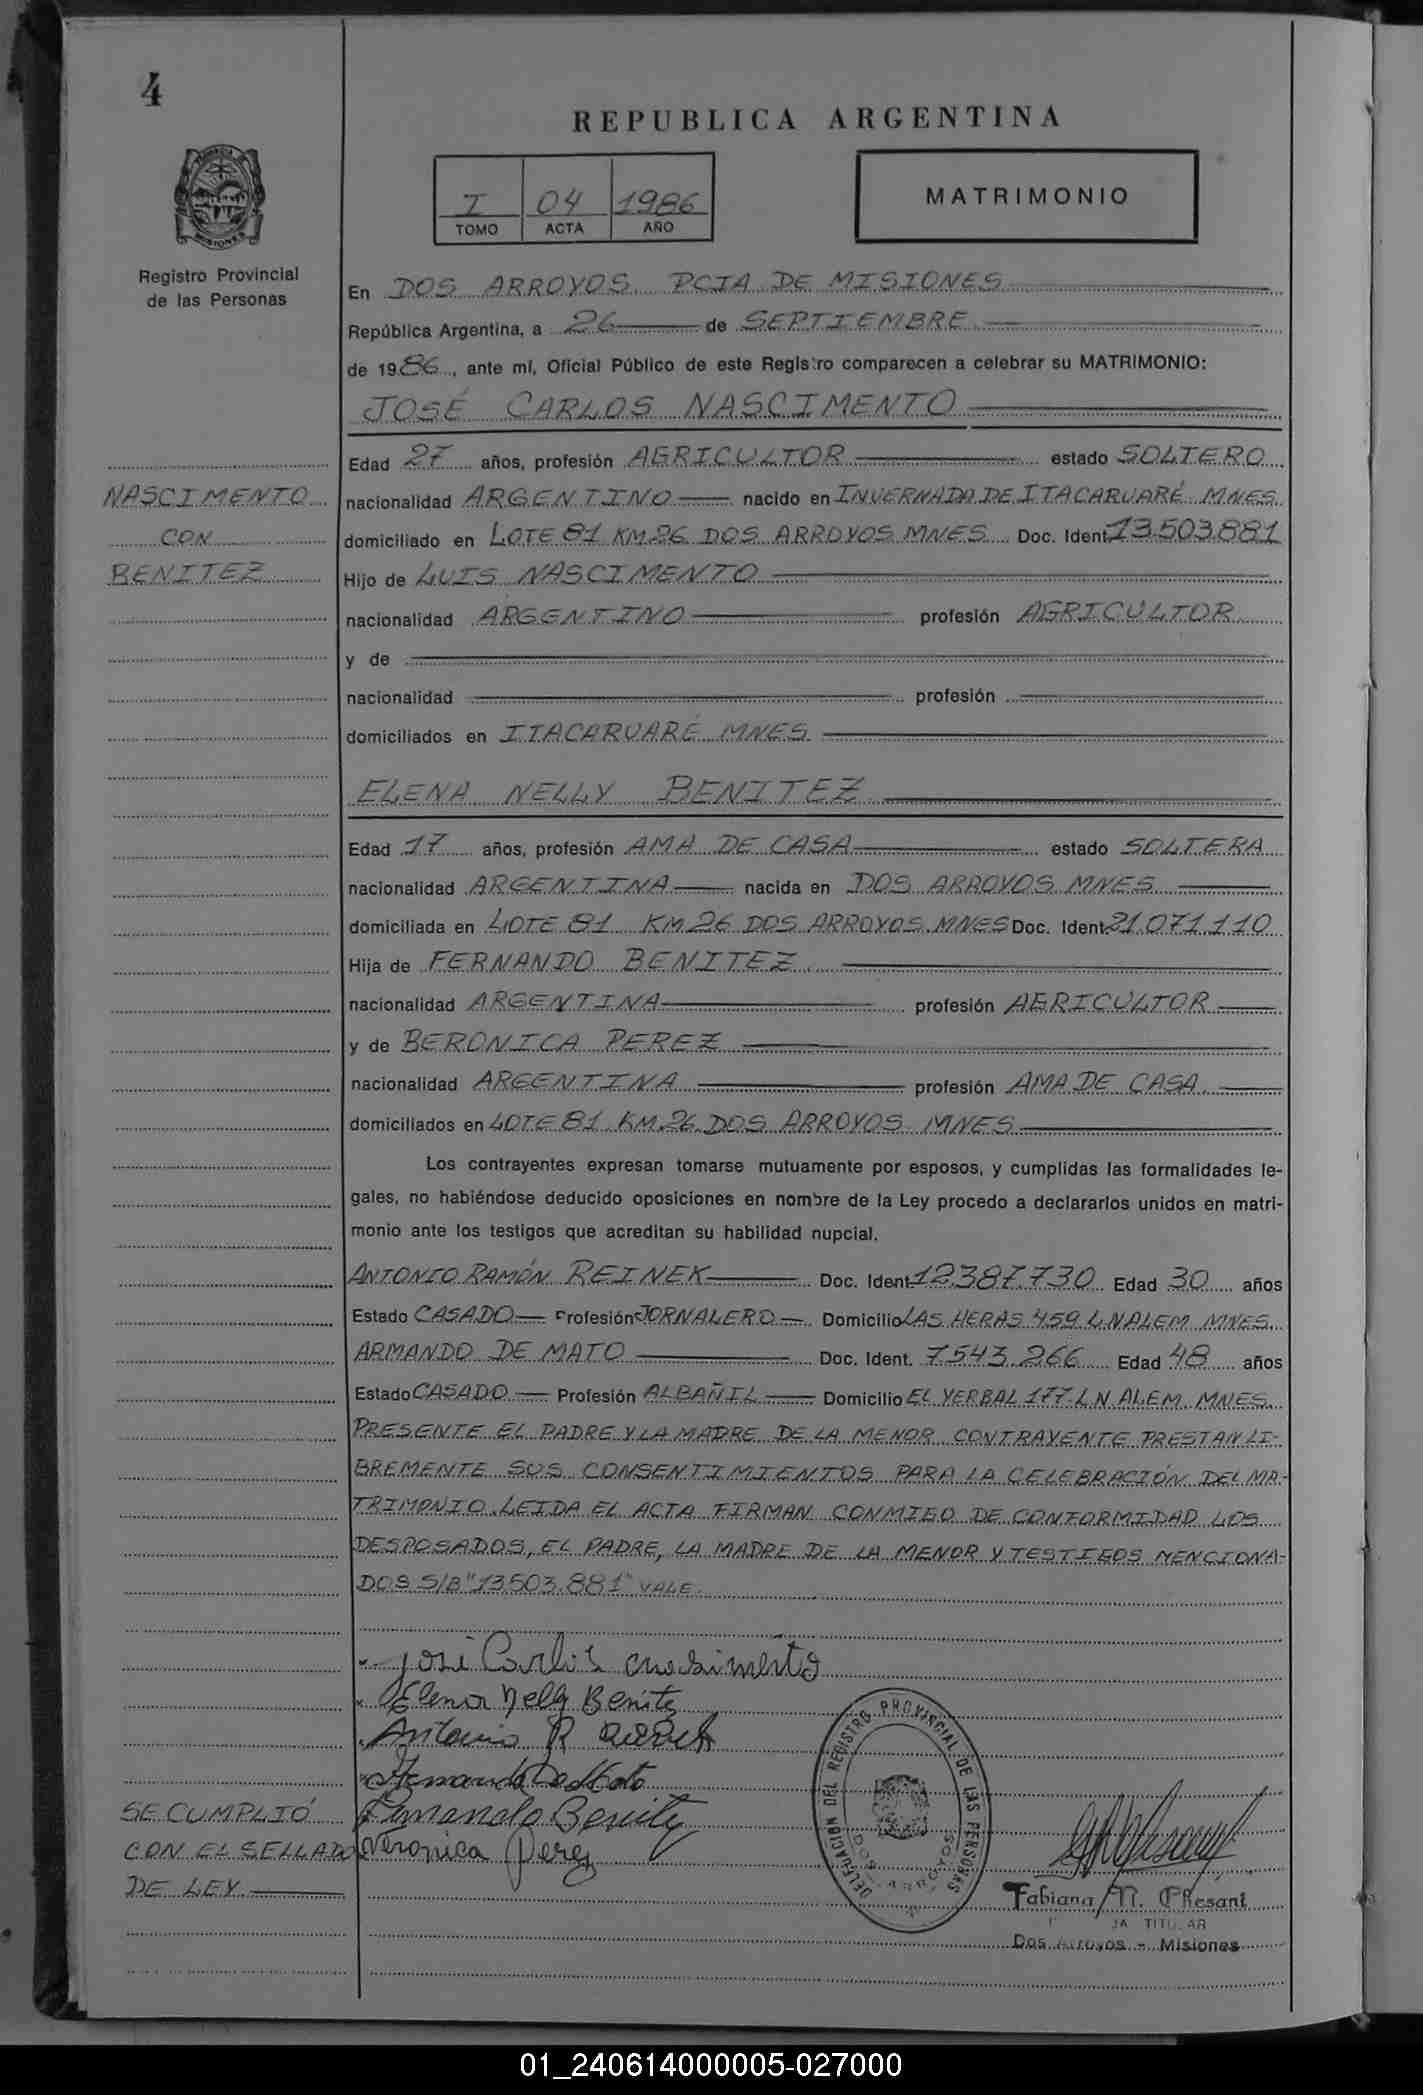 4
REPUBLICA ARGENTINA
I 04 1986
TOMO ACTA AÑO
MATRIMONIO
PROVINCIA DE
MISIONES
Registro Provincial
de las Personas
En DOS ARROYOS PCIA DE MISIONES
República Argentina, a 26 de SEPTIEMBRE
de 1986, ante mí, Oficial Público de este Registro comparecen a celebrar su MATRIMONIO:
JOSÉ CARLOS NASCIMENTO
Edad 27 años, profesión AGRICULTOR estado SOLTERO
NASCIMENTO
CON
BENITEZ
nacionalidad ARGENTINO nacido en INVERNADA DE ITACARUARÉ MNES
domiciliado en LOTE 81 KM 26 DOS ARROYOS MNES Doc. Ident. 13.503.881
Hijo de LUIS NASCIMENTO
nacionalidad ARGENTINO profesión AGRICULTOR
y de
nacionalidad profesión
domiciliados en ITACARUARÉ MNES
ELENA NELLY BENITEZ
Edad 17 años, profesión AMA DE CASA estado SOLTERA
nacionalidad ARGENTINA nacida en DOS ARROYOS MNES
domiciliada en LOTE 81 KM 26 DOS ARROYOS MNES Doc. Ident. 21.071.110
Hija de FERNANDO BENITEZ
nacionalidad ARGENTINA profesión AGRICULTOR
y de BERONICA PEREZ
nacionalidad ARGENTINA profesión AMA DE CASA
domiciliados en LOTE 81 KM 26 DOS ARROYOS MNES
Los contrayentes expresan tomarse mutuamente por esposos, y cumplidas las formalidades le-
gales, no habiéndose deducido oposiciones en nombre de la Ley procedo a declararlos unidos en matri-
monio ante los testigos que acreditan su habilidad nupcial.
ANTONIO RAMÓN REINEK Doc. Ident. 12.387.730 Edad 30 años
Estado CASADO Profesión JORNALERO Domicilio LAS HERAS 459 L N ALEM MNES
ARMANDO DE MATO Doc. Ident. 7.543.266 Edad 48 años
Estado CASADO Profesión ALBAÑIL Domicilio EL YERBAL 177 L N ALEM MNES
PRESENTE EL PADRE Y LA MADRE DE LA MENOR CONTRAYENTE PRESTAN LI-
BREMENTE SUS CONSENTIMIENTOS PARA LA CELEBRACIÓN DEL MA-
TRIMONIO. LEIDA EL ACTA FIRMAN CONMIGO DE CONFORMIDAD LOS
DESPOSADOS, EL PADRE, LA MADRE DE LA MENOR Y TESTIGOS MENCIONA-
DOS S/B "13.503.881" VALE.
José Carlos
Elena Nelly Benitez
Antonio R
Fernando Benitez
Veronica Perez
SE CUMPLIÓ
CON EL SELLADO
DE LEY
DELEGACION DEL REGISTRO PROVINCIAL DE LAS PERSONAS
DOS ARROYOS
Fabiana N. Chesani
TITULAR
Dos Arroyos - Misiones
01_240614000005-027000